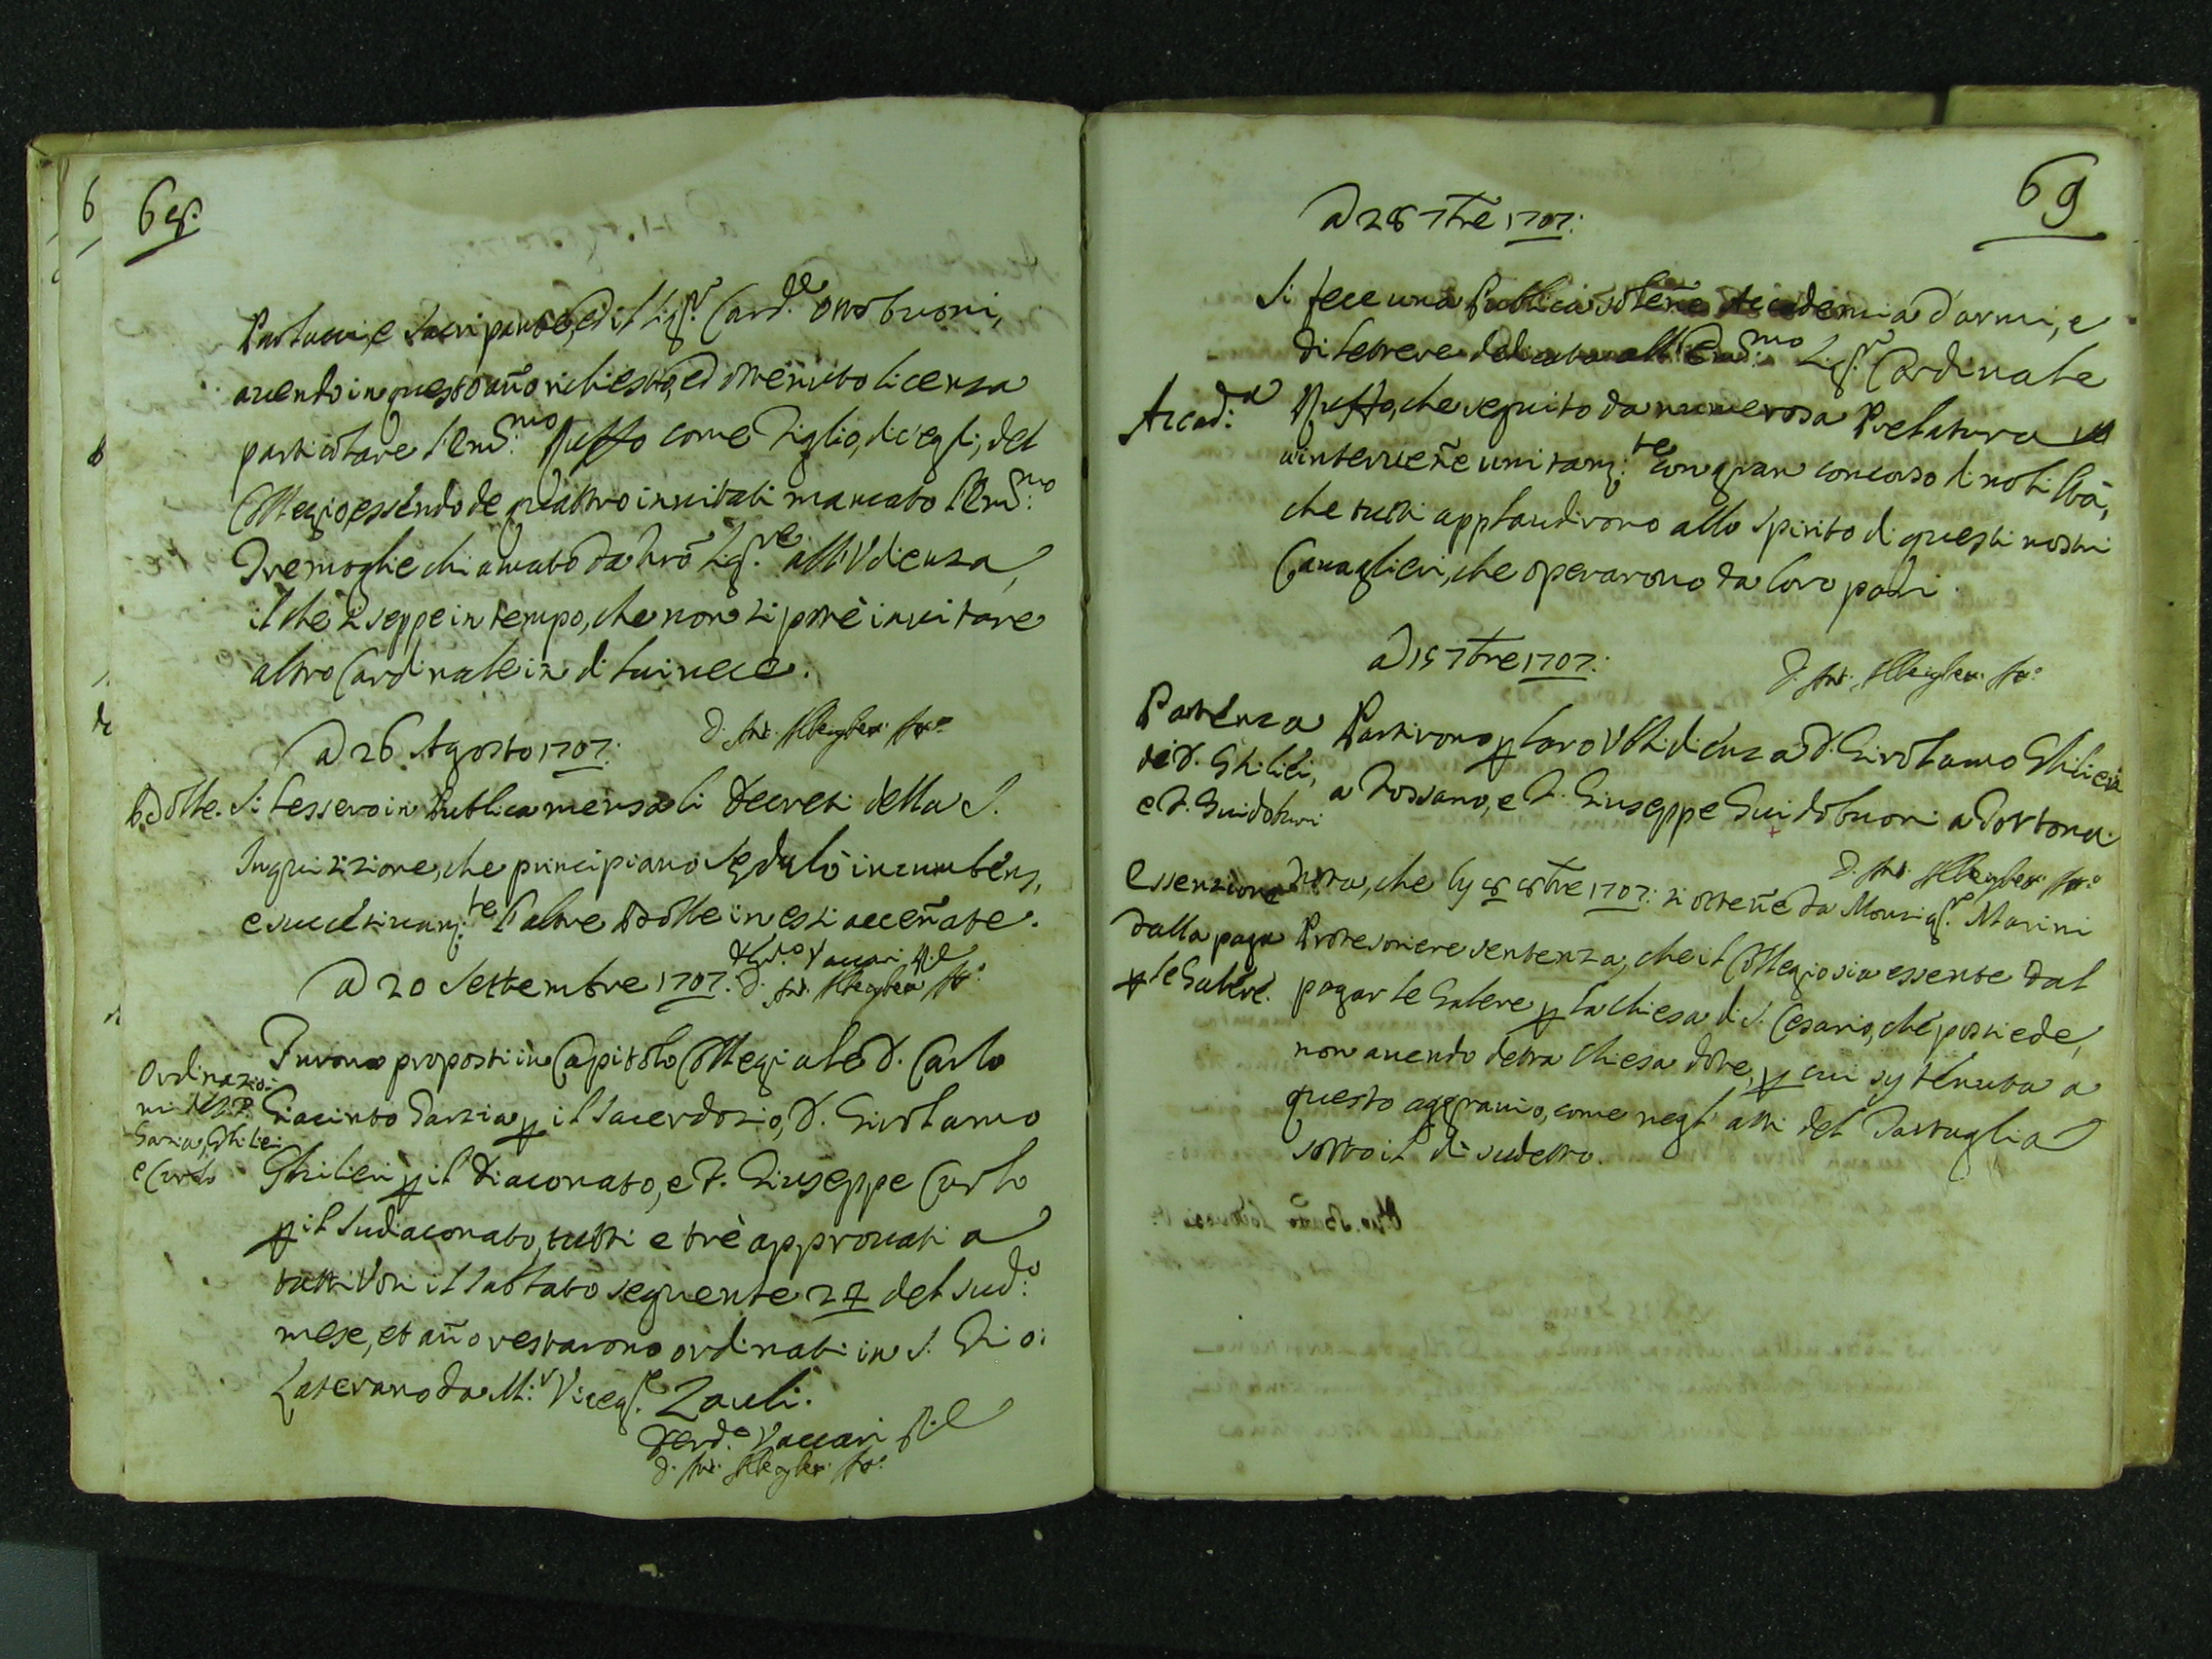 68.
Paolucci, e Sacripante, ed il Sigr. Card.le Ottobuoni,
avendo in questo año richiesto, ed ottenuto licenza
particolare l'Em.mo Ruffo come Figlio, dic'egli, del
Collegio, essendo de quattro invitati mancato l'Em.mo
Tremoglie chiamato da Nrõ Sigre. all'Vdienza,
il che si seppe in tempo, che non si potè invitare
altro Cardinale in di lui vece.
A 26 Agosto 1707:
Bolle. Si lessero in Publica mensa li Decreti della S.
Inquisizione, che principiano Sedulò incumbens,
e successivam.te l'altre Bolle in essi acceñate.
Ferd.o Vaccari
A 20 Settembre 1707.
Ordinazio-
ni
Garzia, Ghilieri
e Curlo
Furono proposti in Capitolo Collegiale D. Carlo
Giacinto Garzia p il sacerdozio, D. Girolamo
Ghilieri p il Diaconato, e F. Giuseppe Curlo
p il Sudiaconato, tutti e trè approvati a
tutti Voti il sabbato seguente 24 del sud.o
mese, et año restarono ordinati in S. Gio:
Laterano da M.r Vicegte. Zauli.
Ferd.o Vaccari
69
A 28 7bre 1707:
Accad.a
Si fece una Publica soleñe Accademia d'armi, e
di lettere dedicata all'Em.mo Sigr. Cardinale
Ruffo, che seguito da numerosa Prelatura
v'interveñe unitam.te con gran concorso di nobiltà,
che tutti applaudirono allo spirito di questi nostri
Cavaglieri, che operarono da loro pari.
A 15 7bre 1707:
Partenza
di D. Ghilieri,
e F. Guidobuoni
Partirono p loro Vbbidienza D. Girolamo Ghilieri
a Fossano, e F. Giuseppe Guidobuoni a Tortona.
Essenzione
dalla paga
p le Galere.
Nota, che li 8 8bre 1707: si otteñe da Monsigr. Marini
Protesoriere sentenza, che il Collegio sia essente dal
pagar le Galere p la chiesa di S. Cesario, che possiede,
non avendo detta Chiesa dote, p cui sij tenuta a
questo aggravio, come negl'atti del Tartaglia
sotto il dì sudetto.